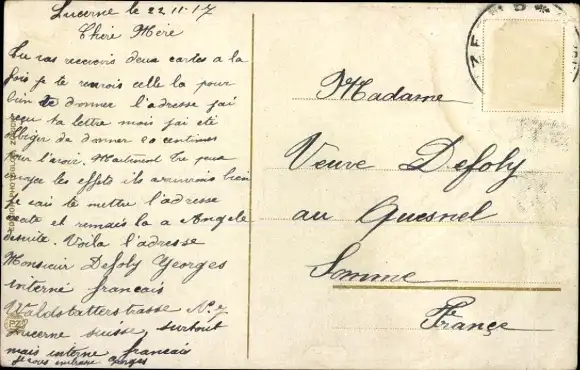 Lucerne le 22 11-17
Chère Mère
Tu vas recevoir deux cartes a la
fois je te renvois celle la pour
bien te donner l'adresse jai
reçu ta lettre mais jai été
obliger da donner 20 centimes
pour l'avoir. Maintenant tu peux
les effets ils arriverois bien
je vais te mettre l'adresse
et remais la a Angele
ensuite. Voila l'adresse
Monsieur Defoly Georges
interné francais
Waldstatterstrasse N. 7
Lucerne suisse, surtout
mais interne francais
je vous embrasse Georges
Madame
Veuve Defoly
au Quesnel
Somme
France